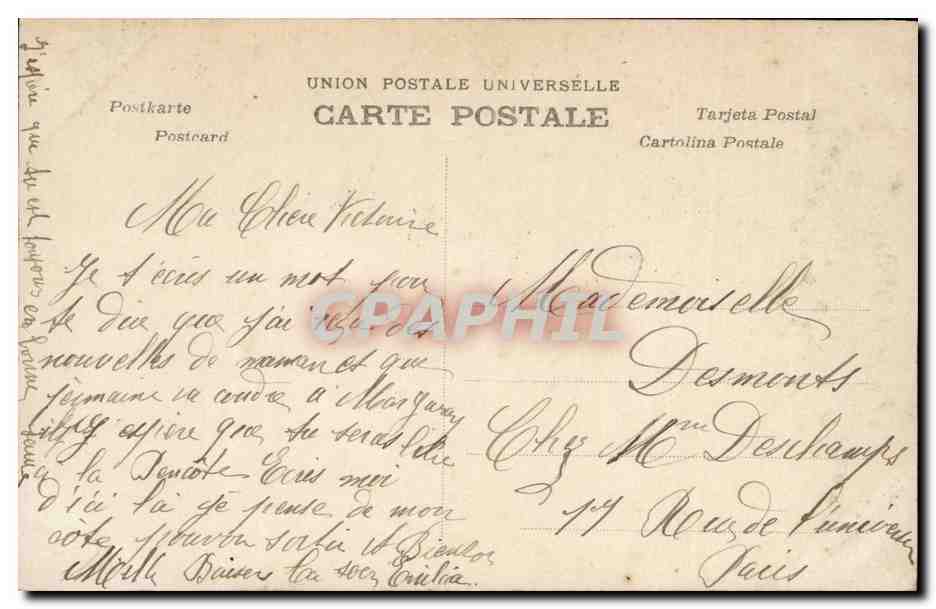 UNION POSTALE UNIVERSELLE
CARTE POSTALE
Postkarte
Postcard
Tarjeta Postal
Cartolina Postale
Ma Chère Victoire
Je t'écris un mot pour
te dire que j'ai reçu des
nouvelles de maman et que
Germaine va coudre à
J'espère que tu seras libre
à la Pencôte Ecris moi
d'ici là je pense de mon
côte pouvoir sortir A Bientot
Mille Baisers Ta soeur Emilia.
J'espère que tu est toujours en bonne santé
Mademoiselle
Desmonts
Chez Mme Deschamps
17 Rue de l'univer
Paris
CPAPHIL